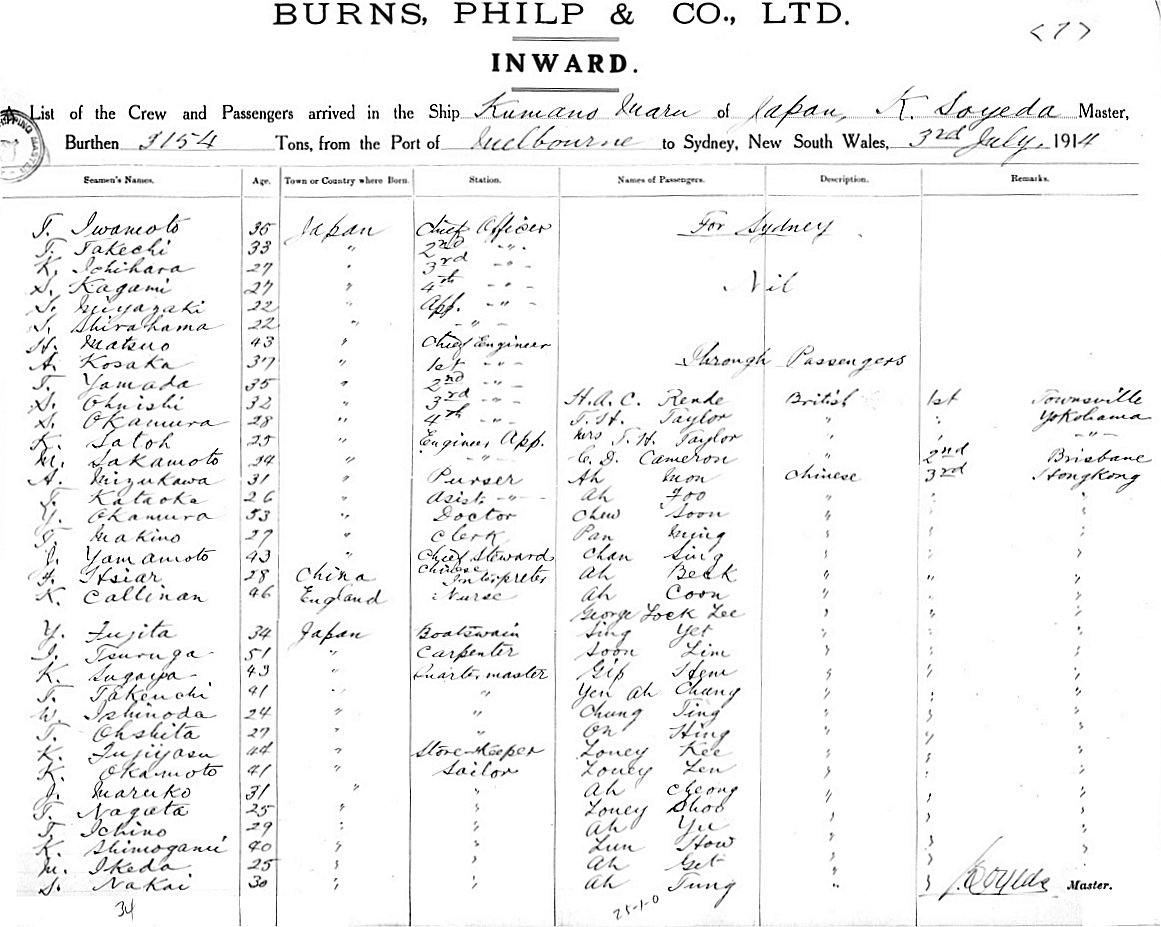 BURNS, PHILP & CO., LTD.
<7>
INWARD.
A List of the Crew and Passengers arrived in the Ship Kumano Maru of Japan, K. Soyeda Master,
Burthen 3154 Tons, from the Port of Melbourne to Sydney, New South Wales, 3rd July, 1914
Seamen's Names. Age. Town or Country where Born. Station. Names of Passengers. Description. Remarks.
T. Iwamoto 35 Japan Chief Officer For Sydney
T. Takechi 33 " 2nd - " -
K. Ichihara 27 " 3rd - " -
S. Kagami 27 " 4th - " - Nil
S. Miyazaki 22 " App. - " -
S. Shirahama 22 " - " -
H. Matsuo 43 " Chief Engineer
A. Kosaka 37 " 1st - " - Through Passengers
T. Yamada 35 " 2nd - " -
S. Ohnishi 32 " 3rd - " - H.A.C. Rende British 1st Townsville
S. Okamura 28 " 4th - " - T.H. Taylor " " Yokohama
K. Satoh 25 " Engineer App. Mrs T.H. Taylor " " - " -
M. Sakamoto 24 " - " - C.D. Cameron " 2nd Brisbane
A. Mizukawa 31 " Purser Ah Mon Chinese 3rd Hongkong
T. Kataoka 26 " Asist. - " - Ah Foo " " "
Y. Okamura 53 " Doctor Chew Soon " " "
T. Makino 27 " Clerk Pan Ming " " "
J. Yamamoto 43 " Chief Steward Chan Sing " " "
Y. Hsiar 28 China Chinese Interpreter Ah Beek " " "
K. Callinan 46 England Nurse Ah Coon " " "
George Lock Lee " " "
Y. Fujita 34 Japan Boatswain Sing Yet " " "
I. Tsuruga 51 " Carpenter Soon Lim " " "
K. Sugaya 43 " Quartermaster Gip Hem " " "
T. Takeuchi 41 " " Yen Ah Chung " " "
W. Ishinoda 24 " " Chung Ting " " "
T. Ohshita 27 " " On Hing " " "
K. Fujiyasu 44 " Store-Keeper Louey Kee " " "
K. Okamoto 41 " Sailor Louey Len " " "
J. Maruko 31 " " Ah Cheong " " "
T. Nagata 25 " " Louey Shoo " " "
T. Ichino 29 " " Ah Yu " " "
K. Shimogami 40 " " Lun How " " "
M. Ikeda 25 " " Ah Get " "
S. Nakai 30 " " Ah Tung " " K. Soyeda Master.
34 25-1-0